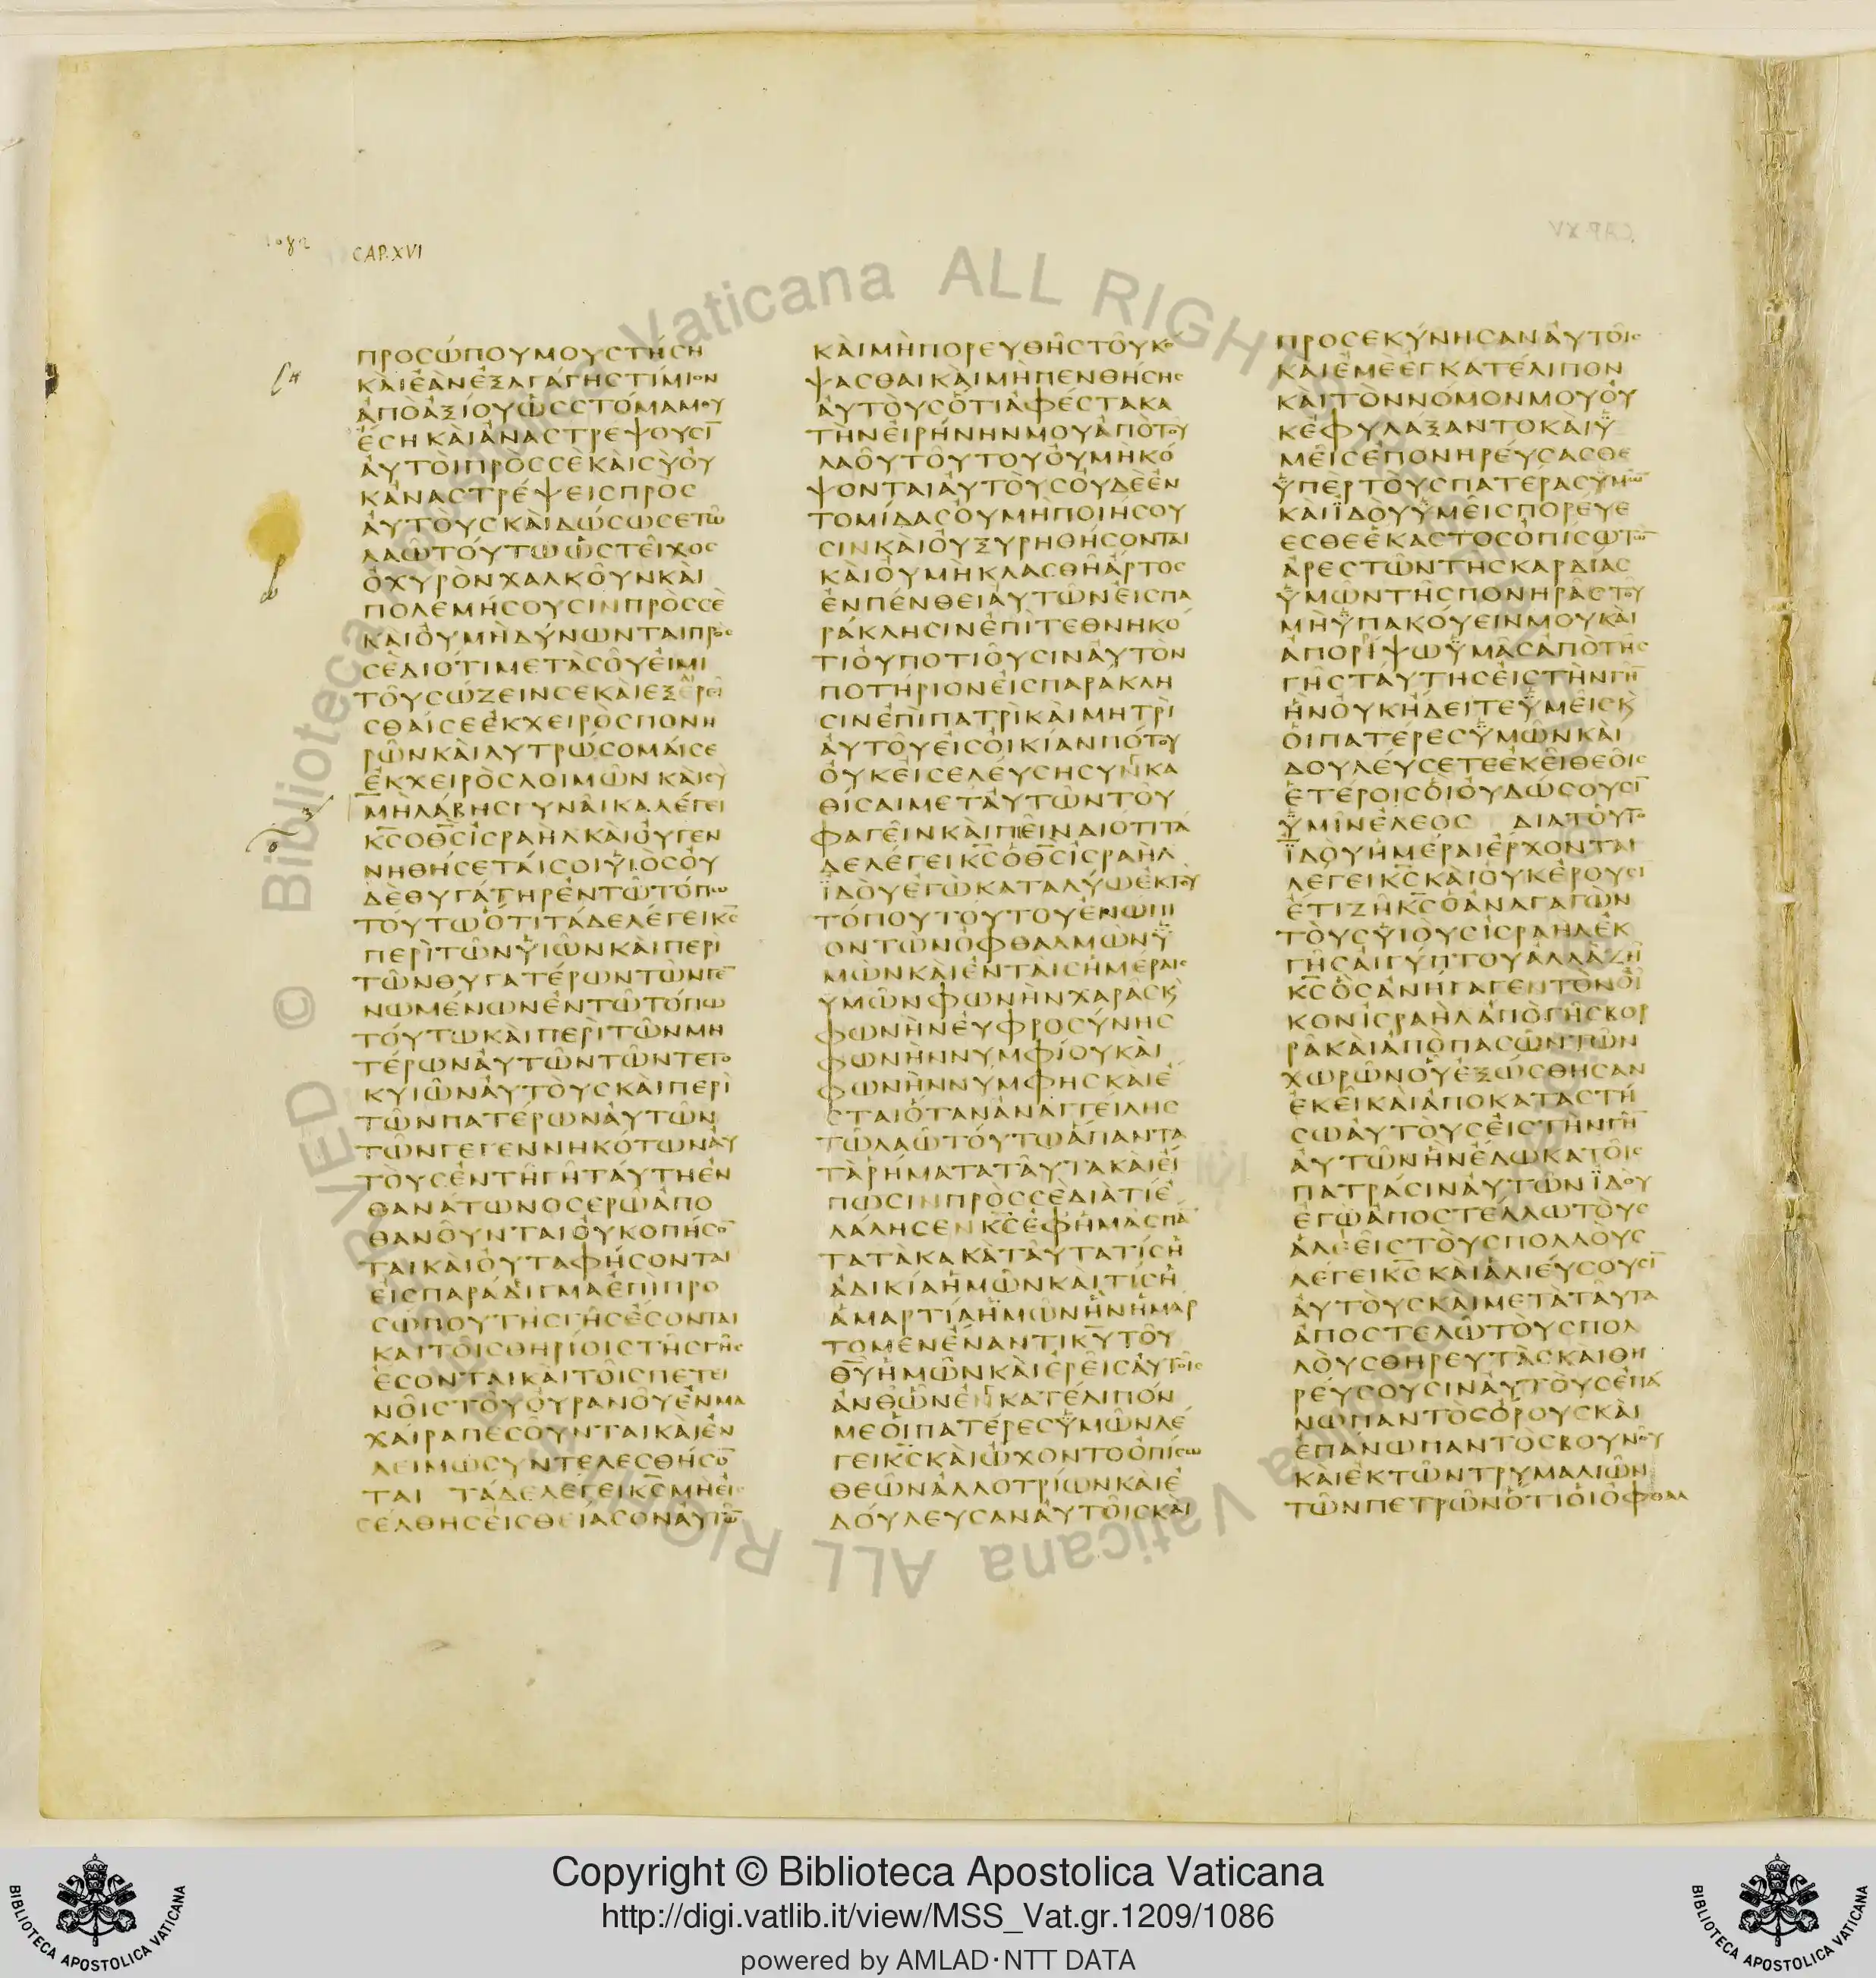 1082
CAP. XVI
ΠΡΟϹΩΠΟΥΜΟΥϹΤΗϹΗ
ΚΑΙΕΑΝΕΞΑΓΑΓΗϹΤΙΜΙΟΝ
ΑΠΟΑΞΙΟΥΩϹϹΤΟΜΑΜΟΥ
ΕϹΗΚΑΙΑΝΑϹΤΡΕΨΟΥϹΙ̅
ΑΥΤΟΙΠΡΟϹϹΕΚΑΙϹΥΟΥ
ΚΑΝΑϹΤΡΕΨΕΙϹΠΡΟϹ
ΑΥΤΟΥϹΚΑΙΔΩϹΩϹΕΤΩ
ΛΑΩΤΟΥΤΩΩϹΤΕΙΧΟϹ
ΟΧΥΡΟΝΧΑΛΚΟΥΝΚΑΙ
ΠΟΛΕΜΗϹΟΥϹΙΝΠΡΟϹϹΕ
ΚΑΙΟΥΜΗΔΥΝΩΝΤΑΙΠΡΟϹ
ϹΕΔΙΟΤΙΜΕΤΑϹΟΥΕΙΜΙ
ΤΟΥϹΩΖΕΙΝϹΕΚΑΙΕΞΑΙΡΕΙ
ϹΘΑΙϹΕΕΚΧΕΙΡΟϹΠΟΝΗ
ΡΩΝΚΑΙΛΥΤΡΩϹΟΜΑΙϹΕ
ΕΚΧΕΙΡΟϹΛΟΙΜΩΝΚΑΙϹΥ
ΜΗΛΑΒΗϹΓΥΝΑΙΚΑΛΕΓΕΙ
Κ̅Ϲ̅ΟΘ̅Ϲ̅ΙϹΡΑΗΛΚΑΙΟΥΓΕΝ
ΝΗΘΗϹΕΤΑΙϹΟΙΥΙΟϹΟΥ
ΔΕΘΥΓΑΤΗΡΕΝΤΩΤΟΠΩ
ΤΟΥΤΩΟΤΙΤΑΔΕΛΕΓΕΙΚ̅Ϲ̅
ΠΕΡΙΤΩΝΥΙΩΝΚΑΙΠΕΡΙ
ΤΩΝΘΥΓΑΤΕΡΩΝΤΩΝΓΕ̅
ΝΩΜΕΝΩΝΕΝΤΩΤΟΠΩ
ΤΟΥΤΩΚΑΙΠΕΡΙΤΩΝΜΗ
ΤΕΡΩΝΑΥΤΩΝΤΩΝΤΕΤΟ
ΚΥΙΩΝΑΥΤΟΥϹΚΑΙΠΕΡΙ
ΤΩΝΠΑΤΕΡΩΝΑΥΤΩΝ
ΤΩΝΓΕΓΕΝΝΗΚΟΤΩΝΑΥ
ΤΟΥϹΕΝΤΗΓΗΤΑΥΤΗΕΝ
ΘΑΝΑΤΩΝΟϹΕΡΩΑΠΟ
ΘΑΝΟΥΝΤΑΙΟΥΚΟΠΗϹΟ̅
ΤΑΙΚΑΙΟΥΤΑΦΗϹΟΝΤΑΙ
ΕΙϹΠΑΡΑΔΙΓΜΑΕΠΙΠΡΟ
ϹΩΠΟΥΤΗϹΓΗϹΕϹΟΝΤΑΙ
ΚΑΙΤΟΙϹΘΗΡΙΟΙϹΤΗϹΓΗϹ
ΕϹΟΝΤΑΙΚΑΙΤΟΙϹΠΕΤΕΙ
ΝΟΙϹΤΟΥΟΥΡΑΝΟΥΕΝΜΑ
ΧΑΙΡΑΠΕϹΟΥΝΤΑΙΚΑΙΕΝ
ΛΕΙΜΩϹΥΝΤΕΛΕϹΘΗϹΟ̅
ΤΑΙ ΤΑΔΕΛΕΓΕΙΚ̅Ϲ̅ΜΗΕΙϹ
ϹΕΛΘΗϹΕΙϹΘΕΙΑϹΟΝΑΥΤΩ̅
ΚΑΙΜΗΠΟΡΕΥΘΗϹΤΟΥΚΟ
ΨΑϹΘΑΙΚΑΙΜΗΠΕΝΘΗϹΗϹ
ΑΥΤΟΥϹΟΤΙΑΦΕϹΤΑΚΑ
ΤΗΝΕΙΡΗΝΗΝΜΟΥΑΠΟΤΟΥ
ΛΑΟΥΤΟΥΤΟΥΟΥΜΗΚΟ
ΨΟΝΤΑΙΑΥΤΟΥϹΟΥΔΕΕΝ
ΤΟΜΙΔΑϹΟΥΜΗΠΟΙΗϹΟΥ
ϹΙΝΚΑΙΟΥΞΥΡΗΘΗϹΟΝΤΑΙ
ΚΑΙΟΥΜΗΚΛΑϹΘΗΑΡΤΟϹ
ΕΝΠΕΝΘΕΙΑΥΤΩΝΕΙϹΠΑ
ΡΑΚΛΗϹΙΝΕΠΙΤΕΘΝΗΚΟ
ΤΙΟΥΠΟΤΙΟΥϹΙΝΑΥΤΟΝ
ΠΟΤΗΡΙΟΝΕΙϹΠΑΡΑΚΛΗ
ϹΙΝΕΠΙΠΑΤΡΙΚΑΙΜΗΤΡΙ
ΑΥΤΟΥΕΙϹΟΙΚΙΑΝΠΟΤΟΥ
ΟΥΚΕΙϹΕΛΕΥϹΗϹΥΝΚΑ
ΘΙϹΑΙΜΕΤΑΥΤΩΝΤΟΥ
ΦΑΓΕΙΝΚΑΙΠΙΕΙΝΔΙΟΤΙΤΑ
ΔΕΛΕΓΕΙΚ̅Ϲ̅ΟΘ̅Ϲ̅ΙϹΡΑΗΛ
ΪΔΟΥΕΓΩΚΑΤΑΛΥΩΕΚΤΟΥ
ΤΟΠΟΥΤΟΥΤΟΥΕΝΩΠΙ
ΟΝΤΩΝΟΦΘΑΛΜΩΝΫ
ΜΩΝΚΑΙΕΝΤΑΙϹΗΜΕΡΑΙϹ
ΥΜΩΝΦΩΝΗΝΧΑΡΑϹΚ̀
ΦΩΝΗΝΕΥΦΡΟϹΥΝΗϹ
ΦΩΝΗΝΝΥΜΦΙΟΥΚΑΙ
ΦΩΝΗΝΝΥΜΦΗϹΚΑΙΕ
ϹΤΑΙΟΤΑΝΑΝΑΓΓΕΙΛΗϹ
ΤΩΛΑΩΤΟΥΤΩΑΠΑΝΤΑ
ΤΑΡΗΜΑΤΑΤΑΥΤΑΚΑΙΕΙ
ΠΩϹΙΝΠΡΟϹϹΕΔΙΑΤΙΕ
ΛΑΛΗϹΕΝΚ̅Ϲ̅ΕΦΗΜΑϹΠΑ̅
ΤΑΤΑΚΑΚΑΤΑΥΤΑΤΙϹΗ
ΑΔΙΚΙΑΗΜΩΝΚΑΙΤΙϹΗ
ΑΜΑΡΤΙΑΗΜΩΝΗΝΗΜΑΡ
ΤΟΜΕΝΕΝΑΝΤΙΚ̅Υ̅ΤΟΥ
Θ̅Υ̅ΗΜΩΝΚΑΙΕΡΕΙϹΑΥΤΟΙϹ
ΑΝΘΩΝΕΝΚΑΤΕΛΙΠΟΝ
ΜΕΟΙΠΑΤΕΡΕϹΫΜΩΝΛΕ
ΓΕΙΚ̅Ϲ̅ΚΑΙΩΧΟΝΤΟΟΠΙϹΩ
ΘΕΩΝΑΛΛΟΤΡΙΩΝΚΑΙΕ
ΔΟΥΛΕΥϹΑΝΑΥΤΟΙϹΚΑΙ
ΠΡΟϹΕΚΥΝΗϹΑΝΑΥΤΟΙϹ
ΚΑΙΕΜΕΕΓΚΑΤΕΛΙΠΟΝ
ΚΑΙΤΟΝΝΟΜΟΝΜΟΥΟΥ
ΚΕΦΥΛΑΞΑΝΤΟΚΑΙΫ
ΜΕΙϹΕΠΟΝΗΡΕΥϹΑϹΘΕ
ΫΠΕΡΤΟΥϹΠΑΤΕΡΑϹΫΜΩ̅
ΚΑΙΪΔΟΥΫΜΕΙϹΠΟΡΕΥΕ
ΕϹΘΕΕΚΑϹΤΟϹΟΠΙϹΩΤΩ̅
ΑΡΕϹΤΩΝΤΗϹΚΑΡΔΙΑϹ
ΫΜΩΝΤΗϹΠΟΝΗΡΑϹΤΟΥ
ΜΗΫΠΑΚΟΥΕΙΝΜΟΥΚΑΙ
ΑΠΟΡΙΨΩΫΜΑϹΑΠΟΤΗϹ
ΓΗϹΤΑΥΤΗϹΕΙϹΤΗΝΓΗ̅
ΗΝΟΥΚΗΔΕΙΤΕΫΜΕΙϹΚ̀
ΟΙΠΑΤΕΡΕϹΫΜΩΝΚΑΙ
ΔΟΥΛΕΥϹΕΤΕΕΚΕΙΘΕΟΙϹ
ΕΤΕΡΟΙϹΟΙΟΥΔΩϹΟΥϹΙ̅
ΫΜΙΝΕΛΕΟϹ ΔΙΑΤΟΥΤΟ
ΪΔΟΥΗΜΕΡΑΙΕΡΧΟΝΤΑΙ
ΛΕΓΕΙΚ̅Ϲ̅ΚΑΙΟΥΚΕΡΟΥϹΙ
ΕΤΙΖΗΚ̅Ϲ̅ΟΑΝΑΓΑΓΩΝ
ΤΟΥϹΥΙΟΥϹΙϹΡΑΗΛΕΚ
ΓΗϹΑΙΓΥΠΤΟΥΑΛΛΑΖΗ
Κ̅Ϲ̅ΟϹΑΝΗΓΑΓΕΝΤΟΝΟΙ
ΚΟΝΙϹΡΑΗΛΑΠΟΓΗϹΒΟΡ
ΡΑΚΑΙΑΠΟΠΑϹΩΝΤΩΝ
ΧΩΡΩΝΟΥΕΞΩϹΘΗϹΑΝ
ΕΚΕΙΚΑΙΑΠΟΚΑΤΑϹΤΗ
ϹΩΑΥΤΟΥϹΕΙϹΤΗΝΓΗ̅
ΑΥΤΩΝΗΝΕΔΩΚΑΤΟΙϹ
ΠΑΤΡΑϹΙΝΑΥΤΩΝΪΔΟΥ
ΕΓΩΑΠΟϹΤΕΛΛΩΤΟΥϹ
ΑΛΕΕΙϹΤΟΥϹΠΟΛΛΟΥϹ
ΛΕΓΕΙΚ̅Ϲ̅ΚΑΙΑΛΙΕΥϹΟΥϹΙ̅
ΑΥΤΟΥϹΚΑΙΜΕΤΑΤΑΥΤΑ
ΑΠΟϹΤΕΛΩΤΟΥϹΠΟΛ
ΛΟΥϹΘΗΡΕΥΤΑϹΚΑΙΘΗ
ΡΕΥϹΟΥϹΙΝΑΥΤΟΥϹΕΠΑ
ΝΩΠΑΝΤΟϹΟΡΟΥϹΚΑΙ
ΕΠΑΝΩΠΑΝΤΟϹΒΟΥΝΟΥ
ΚΑΙΕΚΤΩΝΤΡΥΜΑΛΙΩΝ
ΤΩΝΠΕΤΡΩΝΟΤΙΟΙΟΦΘΑΛ
Copyright © Biblioteca Apostolica Vaticana
http://digi.vatlib.it/view/MSS_Vat.gr.1209/1086
powered by AMLAD·NTT DATA